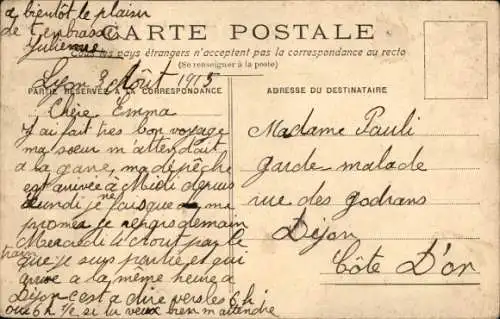 a bientôt le plaisir
de t'embrasser
Julienne
CARTE POSTALE
Tous les pays étrangers n'acceptent pas la correspondance au recto
(Se renseigner à la poste)
PARTIE RÉSERVÉE A LA CORRESPONDANCE
ADRESSE DU DESTINATAIRE
Lyon 3 Aout 1915
Chère Emma
J'ai fait très bon voyage
ma soeur m'attendait
a la gare, ma dépêche
est arrivée a Midi depuis
lundi je ne fais que
promener je repars demain
Mercredi
que je suis partie et qui
arrive a la même heure a
Dijon c'est a dire vers les 6 h
ou 6 h 1/2 si tu veux bien m'attendre
train
Madame Pauli
garde malade
rue des godrans
Dijon
Côte D'or